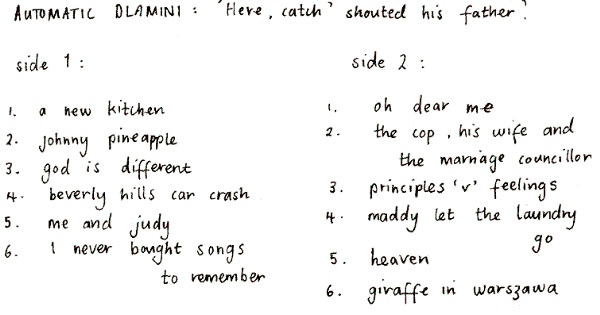 AUTOMATIC DLAMINI : 'Here, catch' shouted his father'.
side 1 :
1. a new kitchen
2. johnny pineapple
3. god is different
4. beverly hills car crash
5. me and judy
6. I never bought songs
to remember
side 2 :
1. oh dear me
2. the cop, his wife and
the marriage councillor
3. principles 'v' feelings
4. maddy let the laundry
go
5. heaven
6. giraffe in warszawa